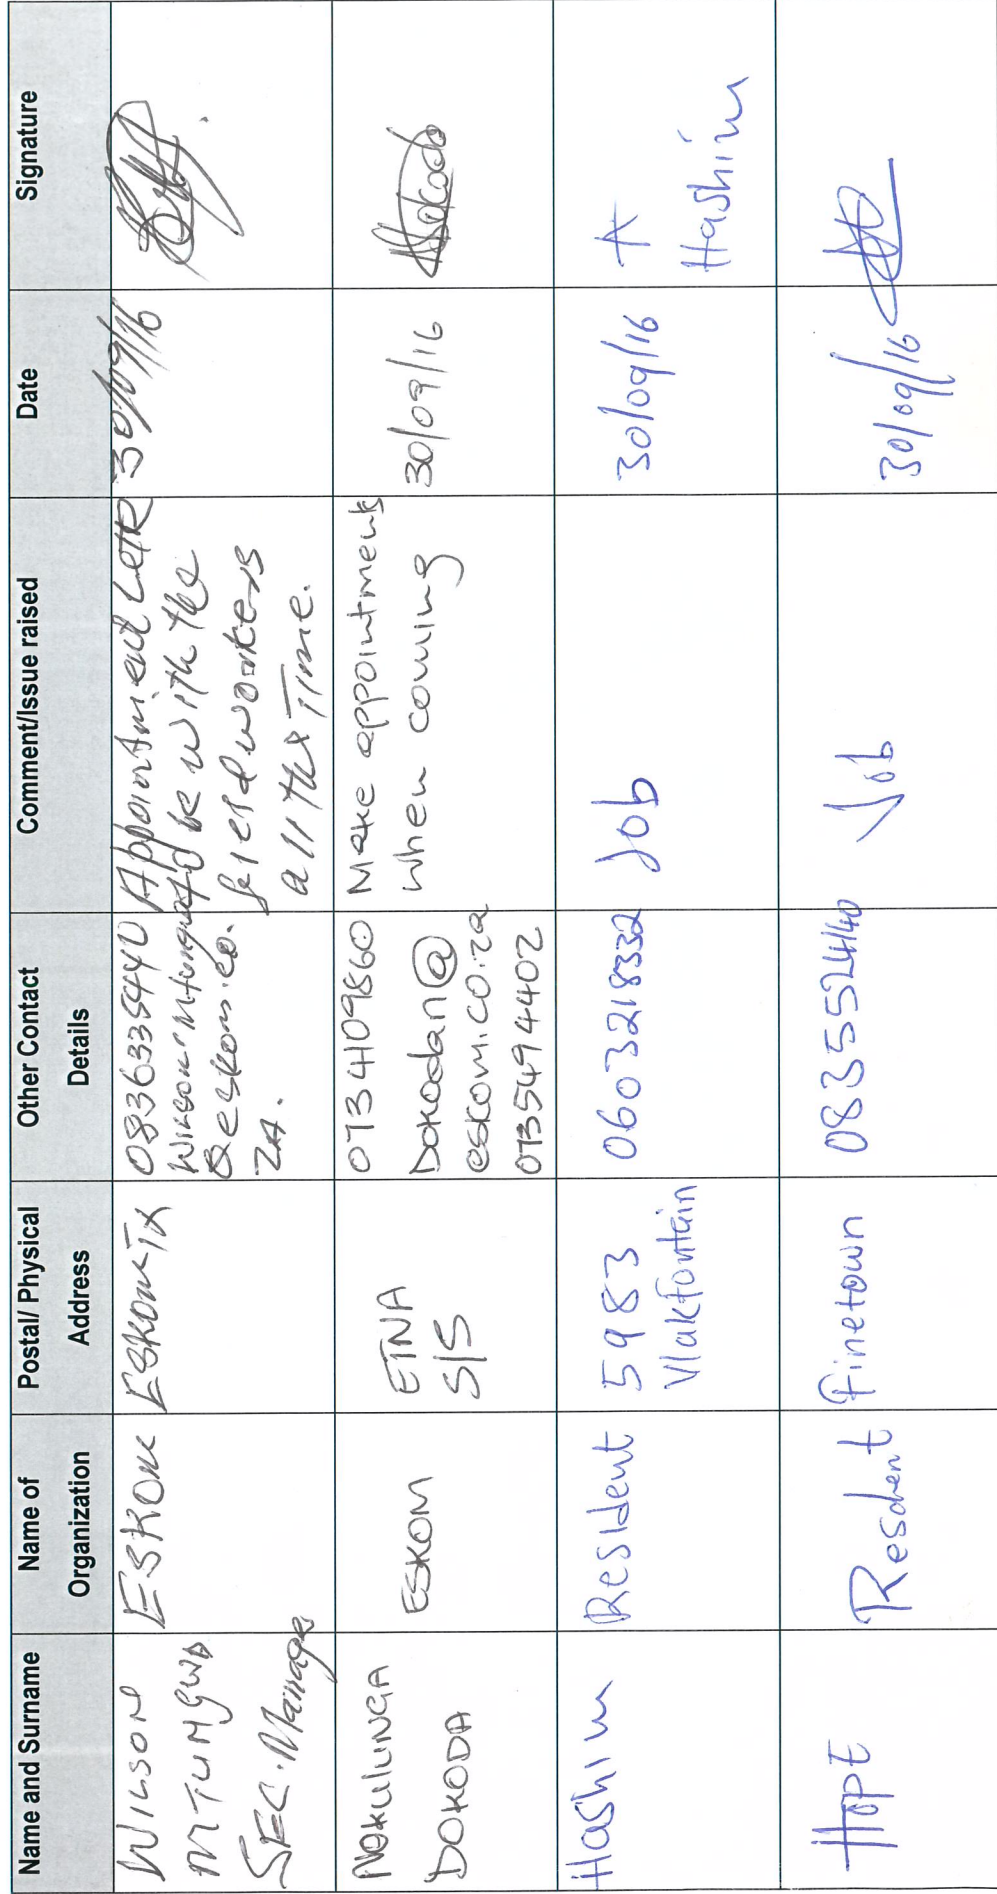 Name and Surname
Name of
Organization
Postal/ Physical
Address
Other Contact
Details
Comment/Issue raised
Date
Signature
WILSON
MTUNGWA
SEC. Manager
ESKOM
ESKOM TX
Wilson.Mtungwa
@eskom.co.
ZA.
Appointment Letter
to be with the
field workers
all the Time.
30/09/16
NOKULUNGA
DOKODA
ESKOM
ETNA
S/S
0734109860
Dokodan@
eskom.co.za
0735494402
Make appointment
when coming
30/09/16
Hashim
Resident
5983
Vlakfontein
0603218332
Job
30/09/16
A
Hashim
HOPE
Resident
finetown
0835552440
Job
30/09/16